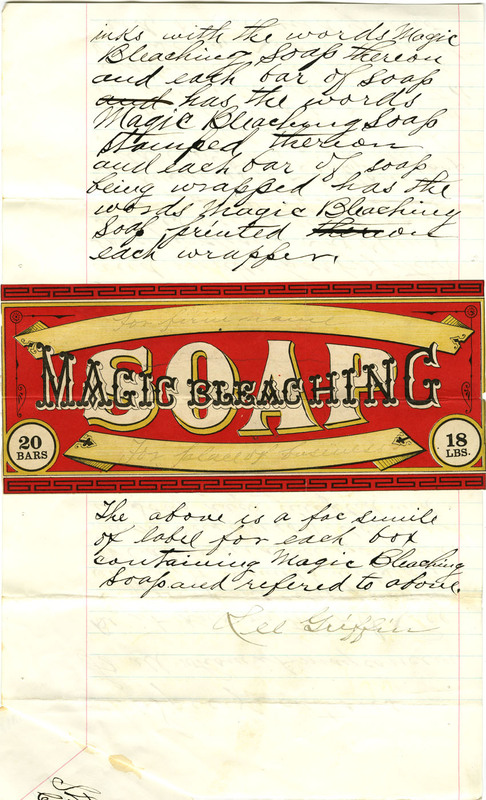 inks with the words Magic
Bleaching Soap thereon
and each bar of soap
and has the words
Magic Bleaching Soap
stamped thereon
and each bar of soap
being wrapped has the
words Magic Bleaching
Soap printed thereon
each wrapper.
For firm name
SOAP
MAGIC BLEACHING
20
BARS
18
LBS.
For place of business
The above is a fac simile
of label for each box
containing Magic Bleaching
Soap and refered to above.
Lee Griffin